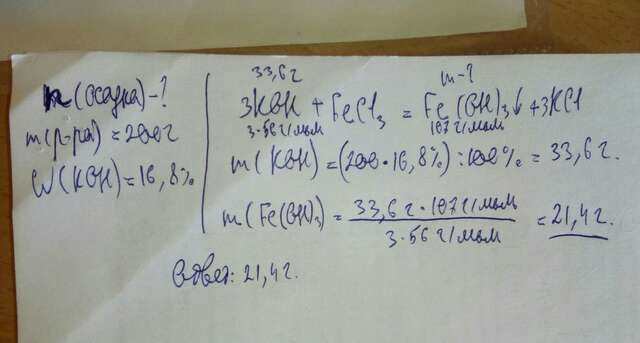 m(осадка)-?
m(р-ра)=200г
W(KOH)=16,8%
33,6г m-?
3KOH + FeCl₃ = Fe(OH)₃↓+3KCl
3·56г/моль 107г/моль
m(KOH)=(200·16,8%):100%=33,6г.
m(Fe(OH)₃)=33,6г·107г/моль
3·56г/моль
=21,4г.
Ответ: 21,4г.